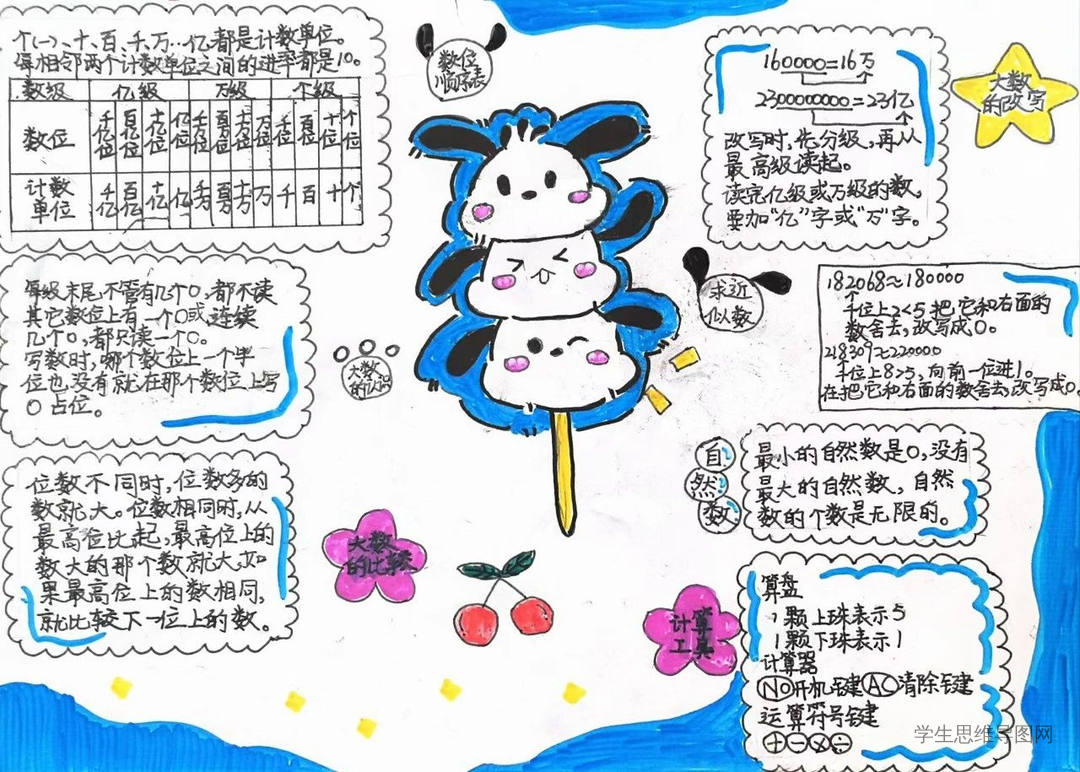 个(一)、十、百、千、万…亿都是计数单位。
每相邻两个计数单位之间的进率都是10。
数级 亿级 万级 个级
数位 千亿位 百亿位 十亿位 亿位 千万位 百万位 十万位 万位 千位 百位 十位 个位
计数单位 千亿 百亿 十亿 亿 千万 百万 十万 万 千 百 十 个
数位
顺序表
160000=16万
2300000000=23亿
改写时,先分级,再从
最高级读起。
读完亿级或万级的数,
要加“亿”字或“万”字。
大数
的改写
每级末尾不管有几个0,都不读
其它数位上有一个0或连续
几个0,都只读一个0。
写数时,哪个数位上一个单
位也没有就在那个数位上写
0占位。
大数
的认识
求近
似数
182068≈180000
千位上2<5把它和右面的
数舍去,改写成0。
218307≈220000
千位上8>5,向前一位进1。
在把它和右面的数舍去,改写成0
自
然
数
最小的自然数是0,没有
最大的自然数,自然
数的个数是无限的。
位数不同时,位数多的
数就大。位数相同时,从
最高位比起,最高位上的
数大的那个数就大,如
果最高位上的数相同,
就比较下一位上的数。
大数
的比较
计算
工具
算盘
1颗上珠表示5
1颗下珠表示1
计算器
NO开机键AC清除键
运算符号键
+-×÷
学生思维导图网